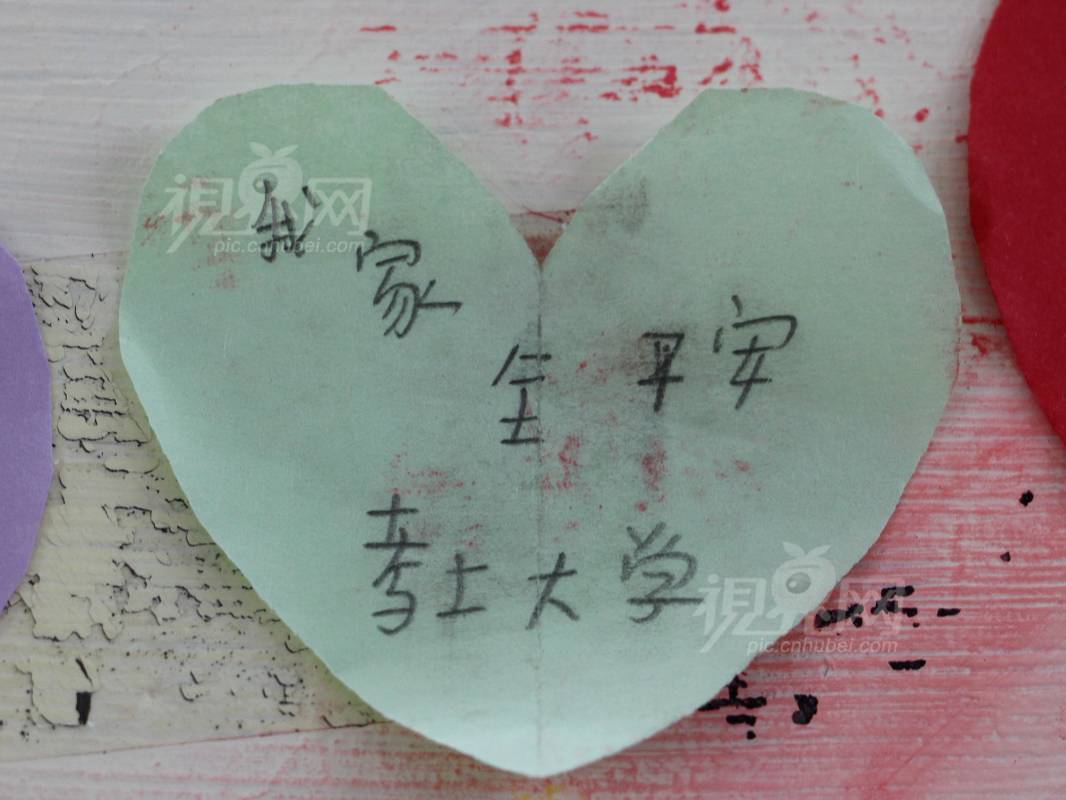 视界网
pic.cnhubei.com
我家全平安
考上大学
视界网
pic.cnhubei.com